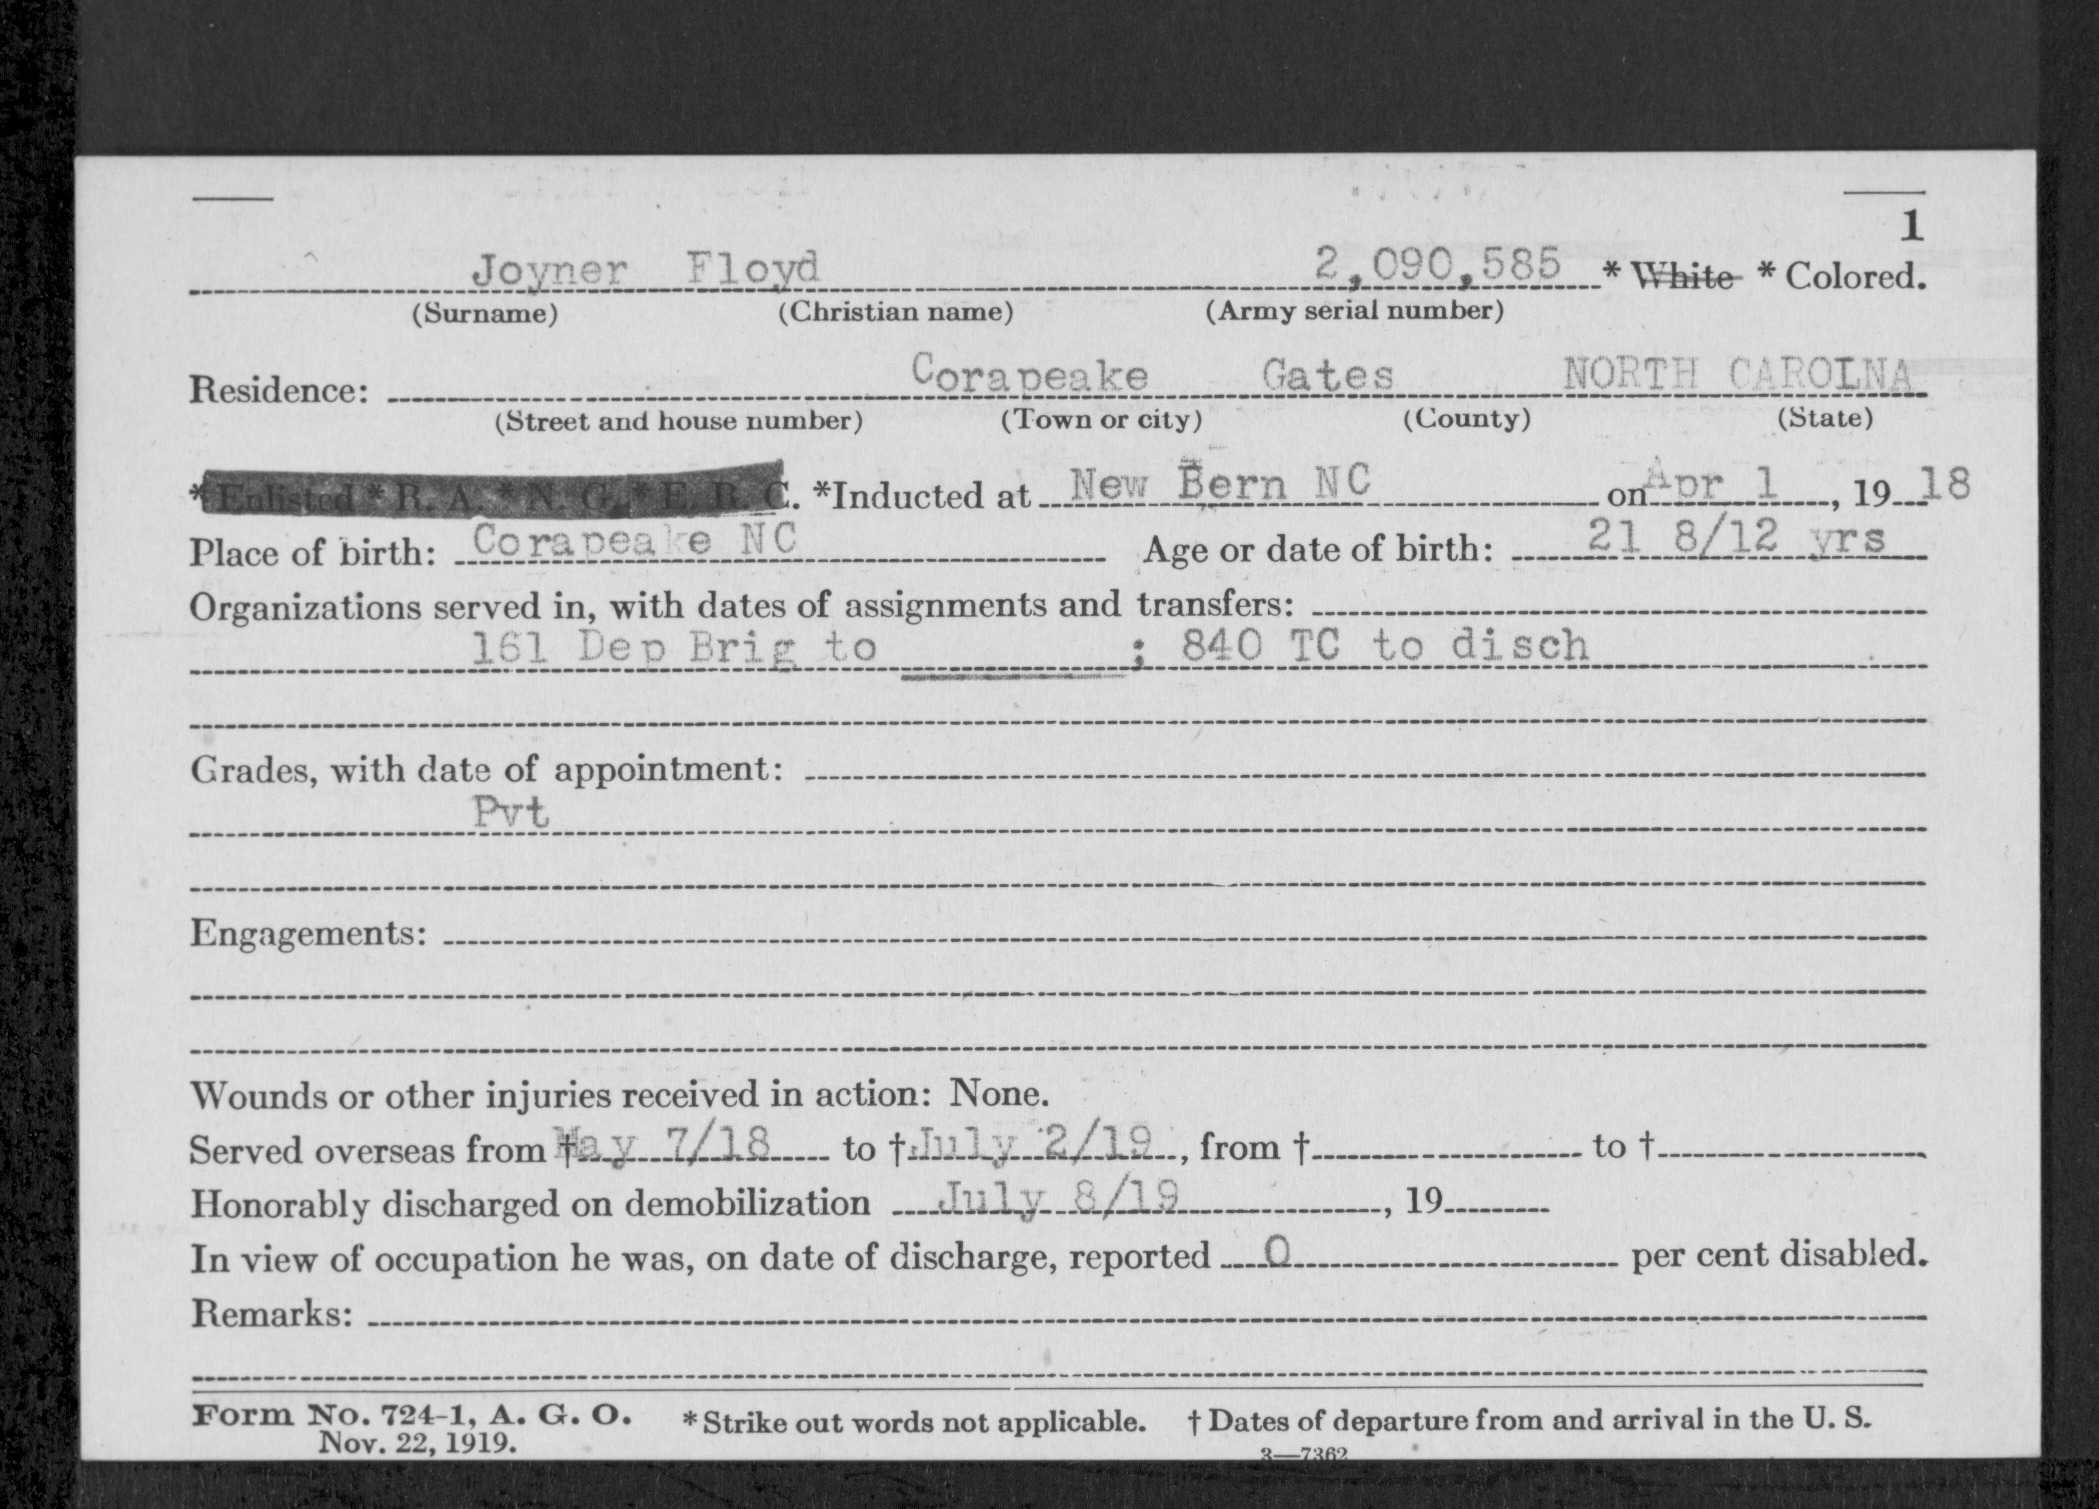 1
Joyner Floyd 2,090,585 * White * Colored.
(Surname) (Christian name) (Army serial number)
Residence: Corapeake Gates NORTH CAROLNA
(Street and house number) (Town or city) (County) (State)
* Enlisted * R. A. * N. G. * E. R. C. *Inducted at New Bern NC on Apr 1, 19 18
Place of birth: Corapeake NC Age or date of birth: 21 8/12 yrs
Organizations served in, with dates of assignments and transfers:
161 Dep Brig to ; 840 TC to disch
Grades, with date of appointment:
Pvt
Engagements:
Wounds or other injuries received in action: None.
Served overseas from † May 7/18 to † July 2/19, from † to †
Honorably discharged on demobilization July 8/19, 19
In view of occupation he was, on date of discharge, reported 0 per cent disabled.
Remarks:
Form No. 724-1, A. G. O. * Strike out words not applicable. † Dates of departure from and arrival in the U. S.
Nov. 22, 1919.
3—7362